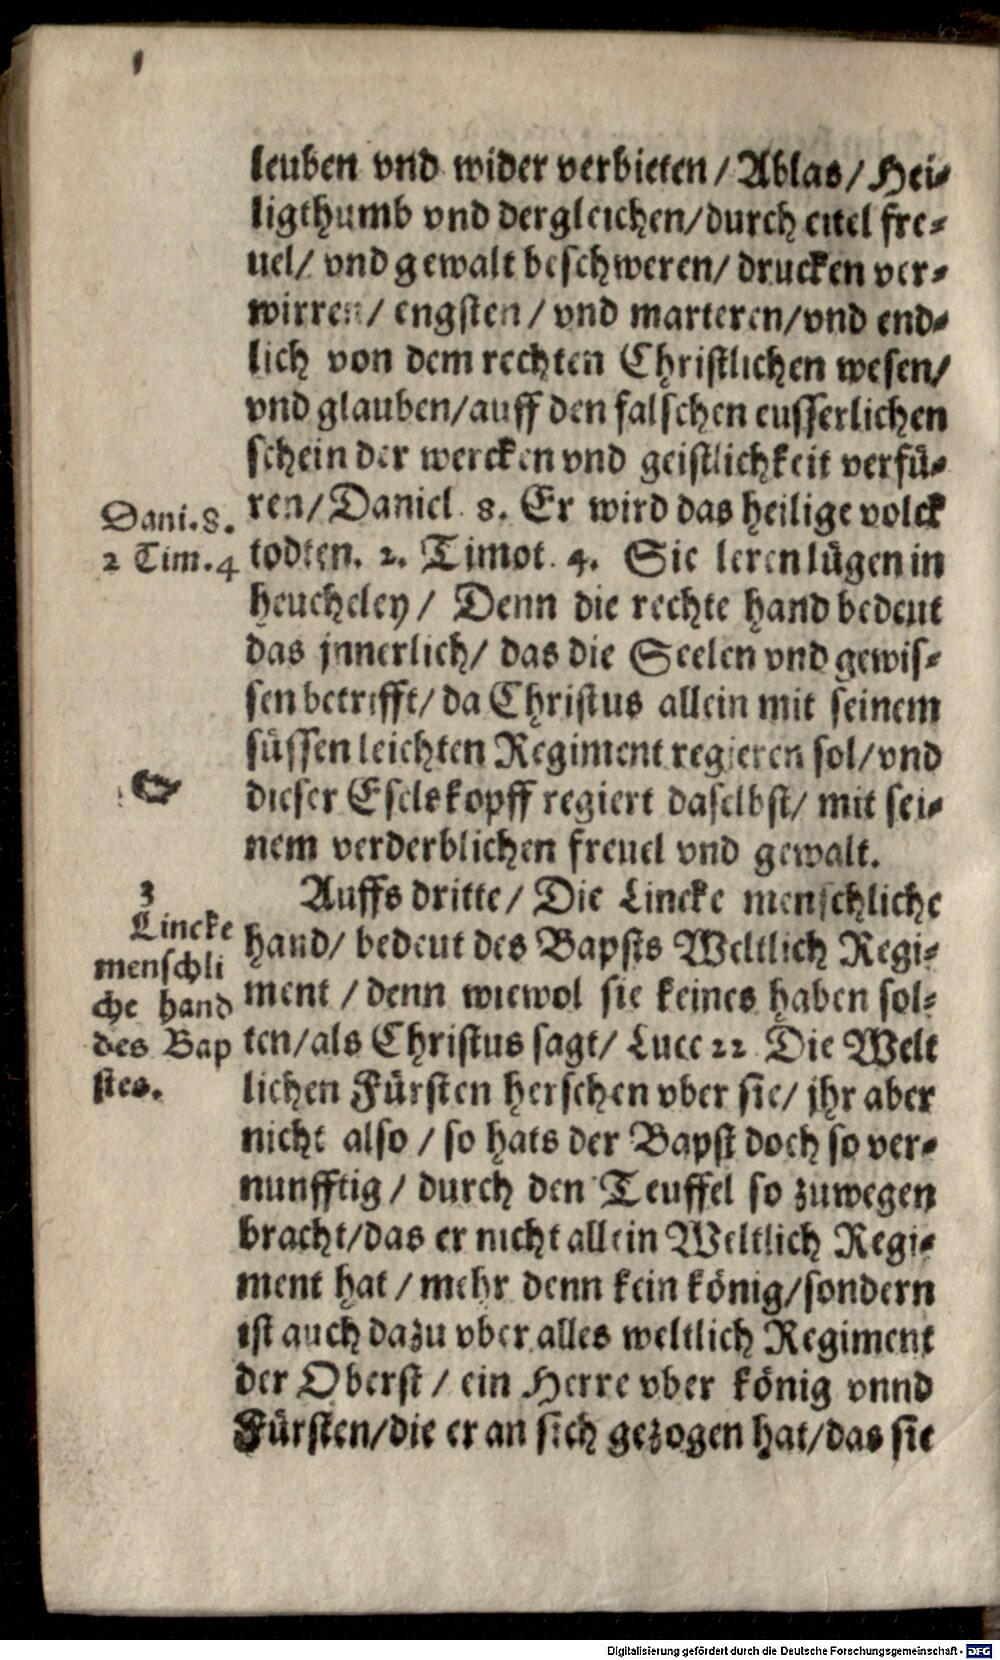 leuben vnd wider verbieten / Ablas / Hei-
ligthumb vnd dergleichen / durch eitel fre-
uel / vnd gewalt beschweren / drucken ver-
wirren / engsten / vnd marteren / vnd end-
lich von dem rechten Christlichen wesen /
vnd glauben / auff den falschen eusserlichen
schein der wercken vnd geistlichkeit verfü-
ren / Daniel 8. Er wird das heilige volck
todten. 2. Timot. 4. Sie leren lügen in
heucheley / Denn die rechte hand bedeut
das jnnerlich / das die Seelen vnd gewis-
sen betrifft / da Christus allein mit seinem
süssen leichten Regiment regieren sol / vnd
dieser Eselskopff regiert daselbst / mit sei-
nem verderblichen freuel vnd gewalt.
Auffs dritte / Die Lincke menschliche
hand / bedeut des Bapsts Weltlich Regi-
ment / denn wiewol sie keines haben sol-
ten / als Christus sagt / Luce 22 Die Welt
lichen Fürsten herschen vber sie / jhr aber
nicht also / so hats der Bapst doch so ver-
nunfftig / durch den Teuffel so zuwegen
bracht / das er nicht allein Weltlich Regi-
ment hat / mehr denn kein könig / sondern
ist auch dazu vber alles weltlich Regiment
der Oberst / ein Herre vber könig vnnd
Fürsten / die er an sich gezogen hat / das sie
Dani. 8.
2 Tim. 4
3
Lincke
menschli
che hand
des Bap
stes.
Digitalisierung gefördert durch die Deutsche Forschungsgemeinschaft - DFG